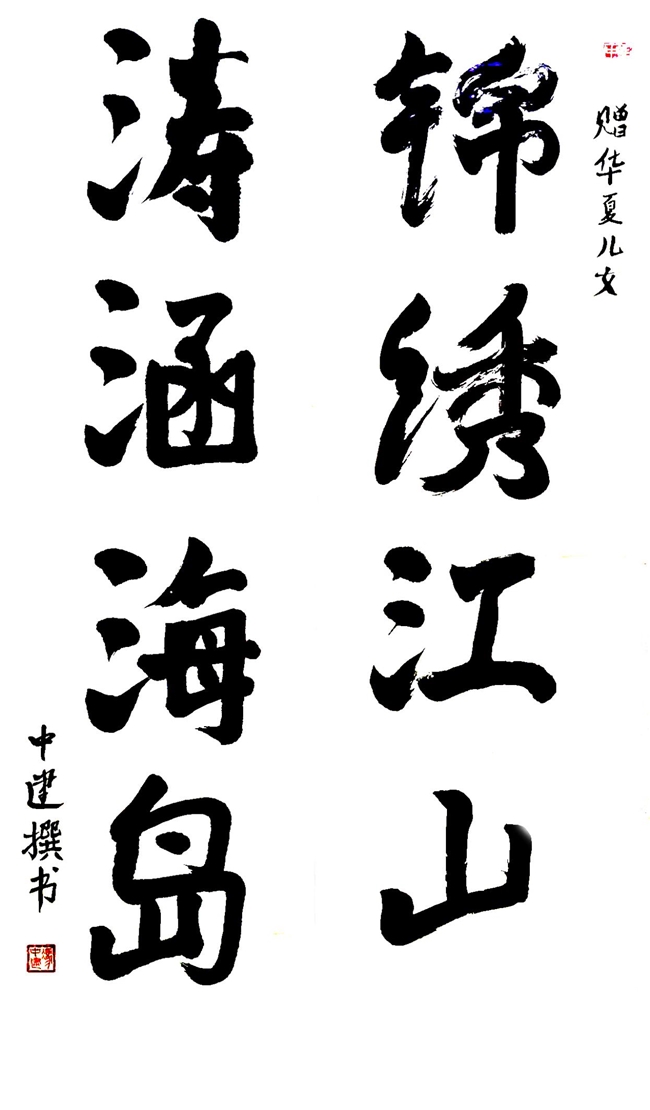 赠华夏儿女
锦绣江山
涛涵海岛
中建撰书